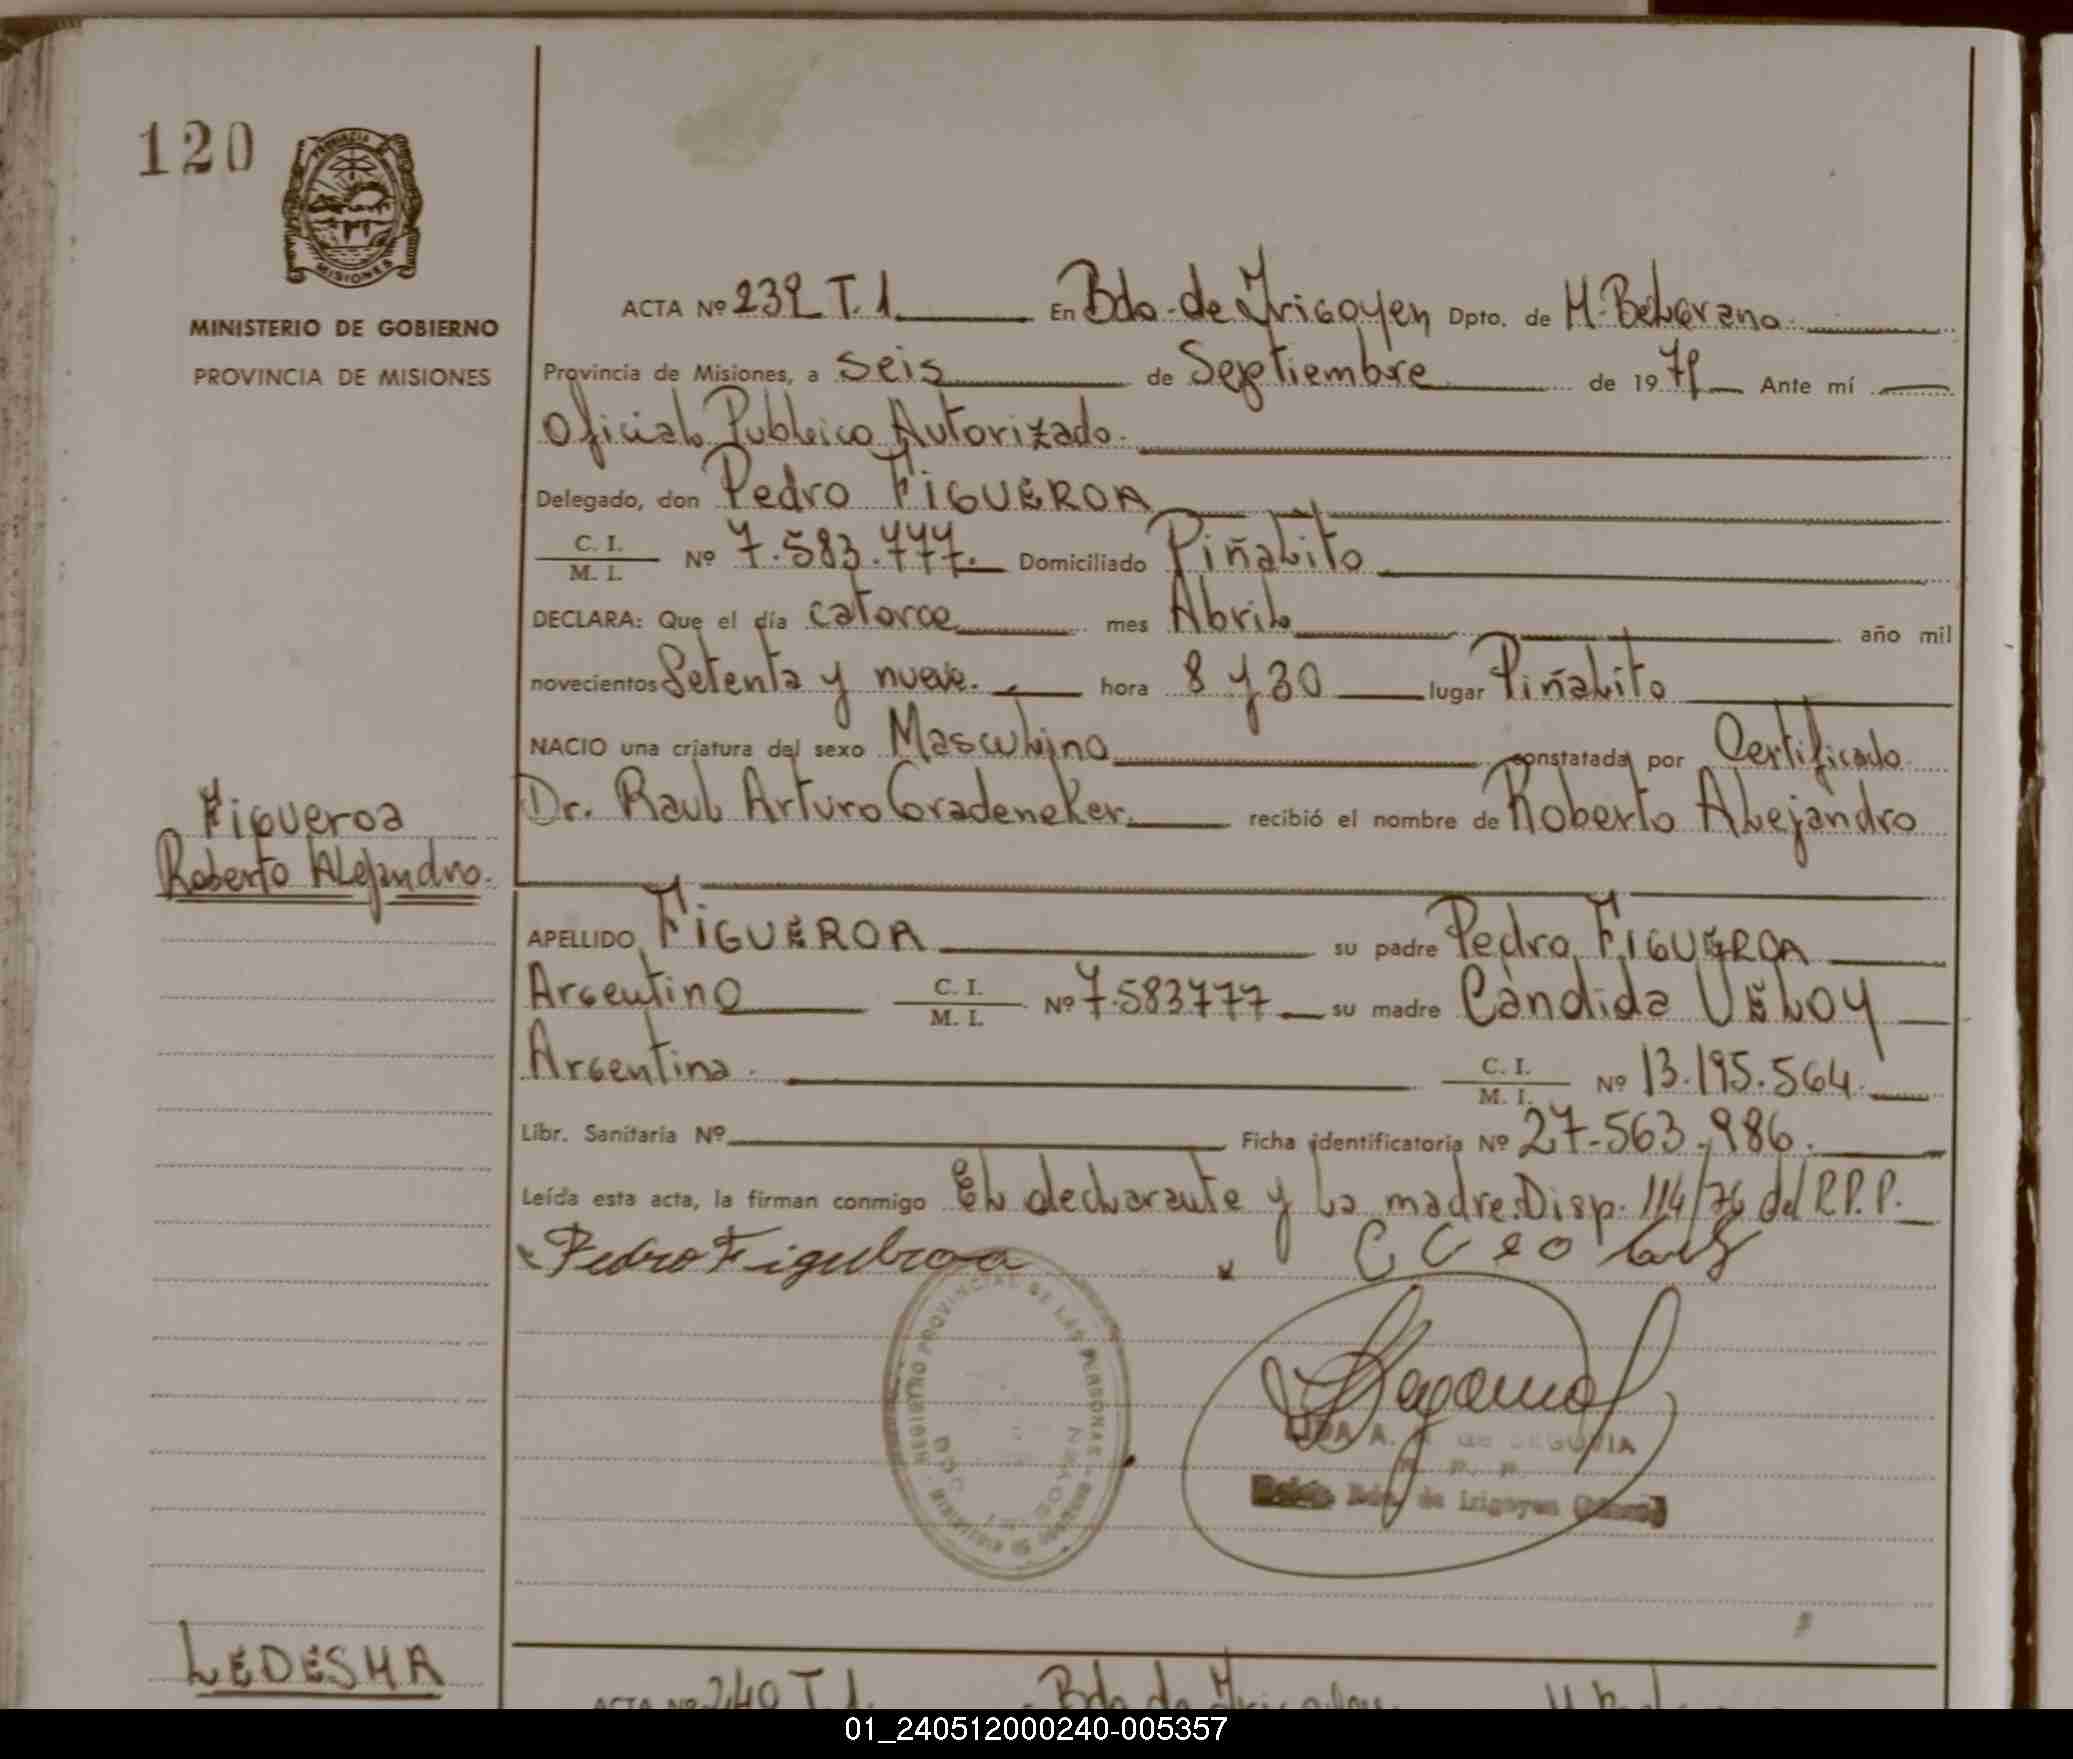 120
PROVINCIA DE
MISIONES
MINISTERIO DE GOBIERNO
PROVINCIA DE MISIONES
ACTA Nº 239 T. 1 En Bdo. de Irigoyen Dpto. de M. Belgrano
Provincia de Misiones, a seis de Septiembre de 1979 Ante mí
Oficial Publico Autorizado.
Delegado, don Pedro FIGUEROA
C. I.
M. I. Nº 7.583.777. Domiciliado Piñalito
DECLARA: Que el día catorce mes Abril año mil
novecientos Setenta y nueve. hora 8 y 30 lugar Piñalito
NACIO una criatura del sexo Masculino constatada por Certificado
Dr. Raul Arturo Gradeneker. recibió el nombre de Roberto Alejandro
Figueroa
Roberto Alejandro.
APELLIDO FIGUEROA su padre Pedro FIGUEROA
Argentino C. I.
M. I. Nº 7.583777 su madre Cándida VELOY
Argentina. C. I.
M. I. Nº 13.195.564.
Libr. Sanitaria Nº Ficha identificatoria Nº 27.563.986.
Leída esta acta, la firman conmigo El declarante y la madre. Disp. 114/76 del R.P.P.
Pedro Figueroa
REGISTRO PROVINCIAL DE LAS PERSONAS
A. de SEGOVIA
R. P. P.
Bdo. de Irigoyen
LEDESMA
ACTA Nº 240 T 1. Bdo de Irigoyen
01_240512000240-005357